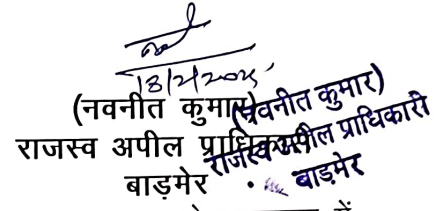 18/2/2025
(नवनीत कुमार)
राजस्व अपील प्राधिकारी
बाड़मेर
(नवनीत कुमार)
राजस्व अपील प्राधिकारी
बाड़मेर